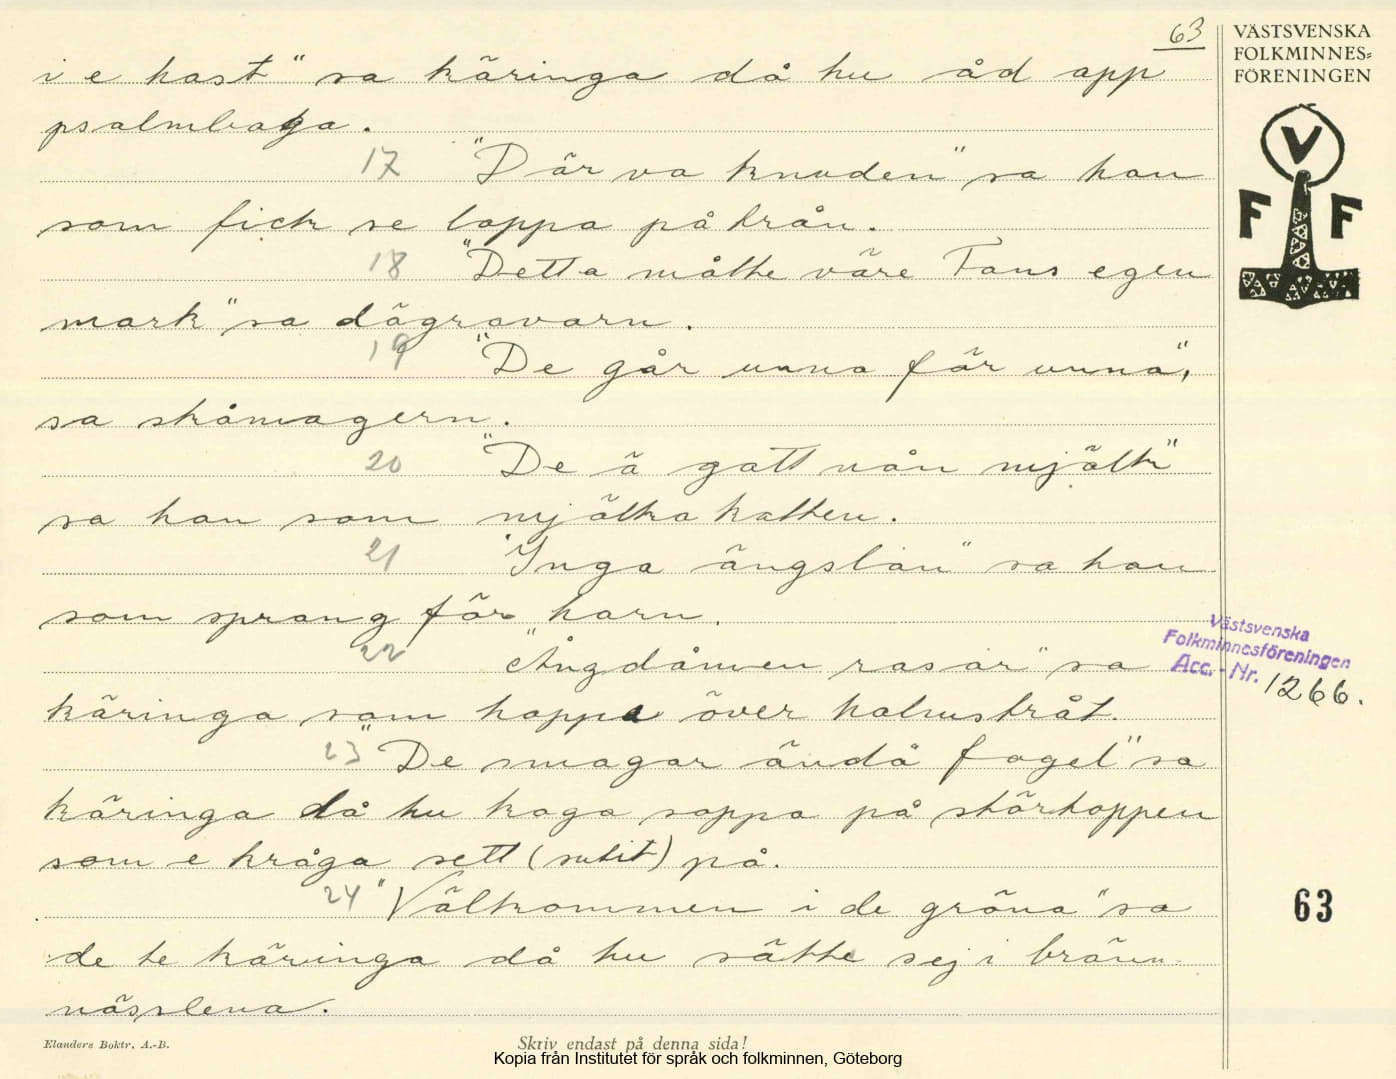 63
VÄSTSVENSKA
FOLKMINNES-
FÖRENINGEN
V
F F
i e hast" sa käringa då hu åd app
psalmboka.
17 "Där va knuden" sa han
som fick se loppa på trån.
18 "Detta måtte väre Fans egen
mark" sa dägravarn.
19 "De går unna får unna",
sa skåmagern.
20 "De ä gott nån mjölk"
sa han som mjölka katten.
21 "Inga ängslan" sa han
som sprang för harn.
22 "Ångdåmen rasar" sa
käringa som hoppa över halmstråt.
23 "De smagar ändå fogel" sa
käringa då hu koga soppa på störtoppen
som e kråga sett (sutit) på.
24 "Välkommen i de gröna" sa
de te käringa då hu sätte sej i bränn-
nässlena.
Västsvenska
Folkminnesföreningen
Acc. - Nr. 1266.
63
Elanders Boktr. A.-B.
Skriv endast på denna sida!
Kopia från Institutet för språk och folkminnen, Göteborg